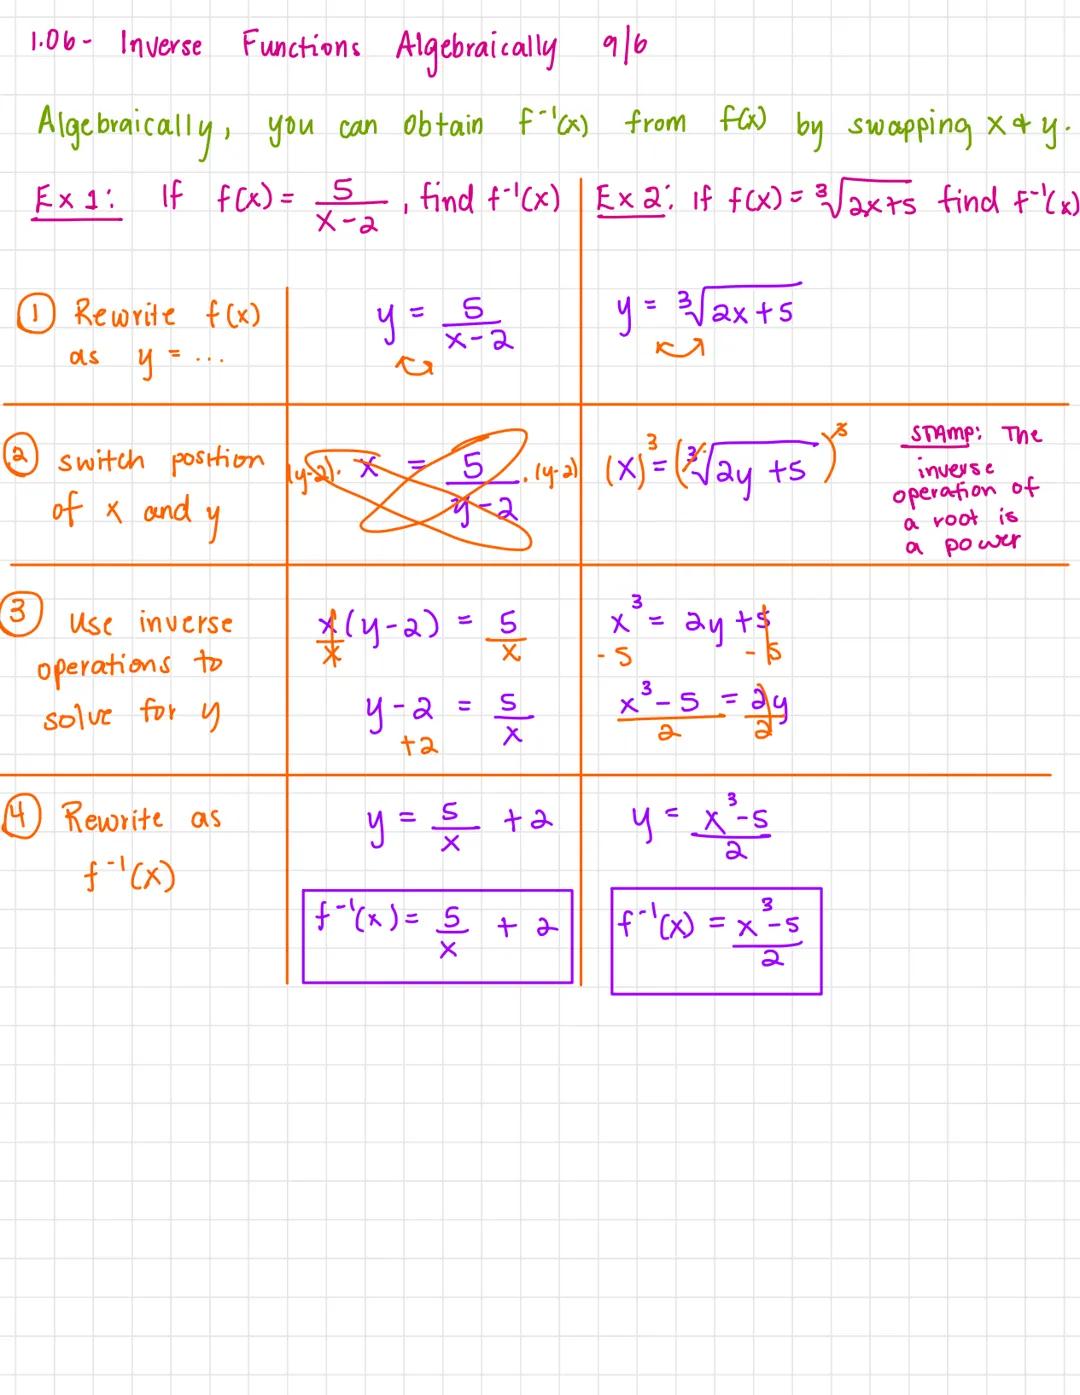 1.06- Inverse Functions Algebraically 9/6
Algebraically, you can obtain f⁻¹(x) from f(x) by swapping x & y.
Ex 1: If f(x) = 5/(x-2), find f⁻¹(x)
Ex 2: If f(x) = ³√(2x+5) find f⁻¹(x)
① Rewrite f(x)
as y = ...
y = 5/(x-2)
y = ³√(2x+5)
② switch position
of x and y
(y-2). x = 5/(y-2) . (y-2)
(x)³ = (³√(2y+5))³
STAMP: The
inverse
operation of
a root is
a power
③ Use inverse
operations to
solve for y
x(y-2)/x = 5/x
y-2 = 5/x
+2
x³ = 2y+5
-5 -5
(x³-5)/2 = 2y/2
④ Rewrite as
f⁻¹(x)
y = 5/x + 2
f⁻¹(x) = 5/x + 2
y = (x³-5)/2
f⁻¹(x) = (x³-5)/2